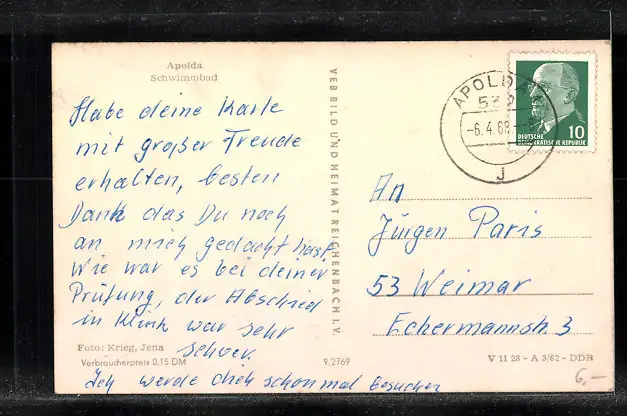 Apolda
Schwimmbad
Habe deine Karte
mit großer Freude
erhalten, besten
Dank das Du noch
an mich gedacht hast.
Wie war es bei deiner
Prüfung, der Abschied
in Klink war sehr
schwer.
Ich werde dich schon mal besuchen
Foto: Krieg, Jena
Verbraucherpreis 0,15 DM
9/2769
VEB BILD UND HEIMAT REICHENBACH I. V.
APOLDA 1
532
-6.4.68
J
10
DEUTSCHE
DEMOKRATISCHE REPUBLIK
An
Jürgen Paris
53 Weimar
Eckermannstr. 3
V 11 28 - A 3/62 - DDR
6,-